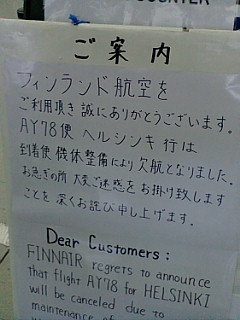 COUNTER
ご案内
フィンランド航空を
ご利用頂き誠にありがとうございます。
AY78便 ヘルシンキ 行は
到着便 機体整備により 欠航となりました。
お急ぎの所 大変ご迷惑を お掛け致します
ことを 深くお詫び申し上げます。
Dear Customers:
FINNAIR regrets to announce
that flight AY78 for HELSINKI
will be canceled due to
maintenance of